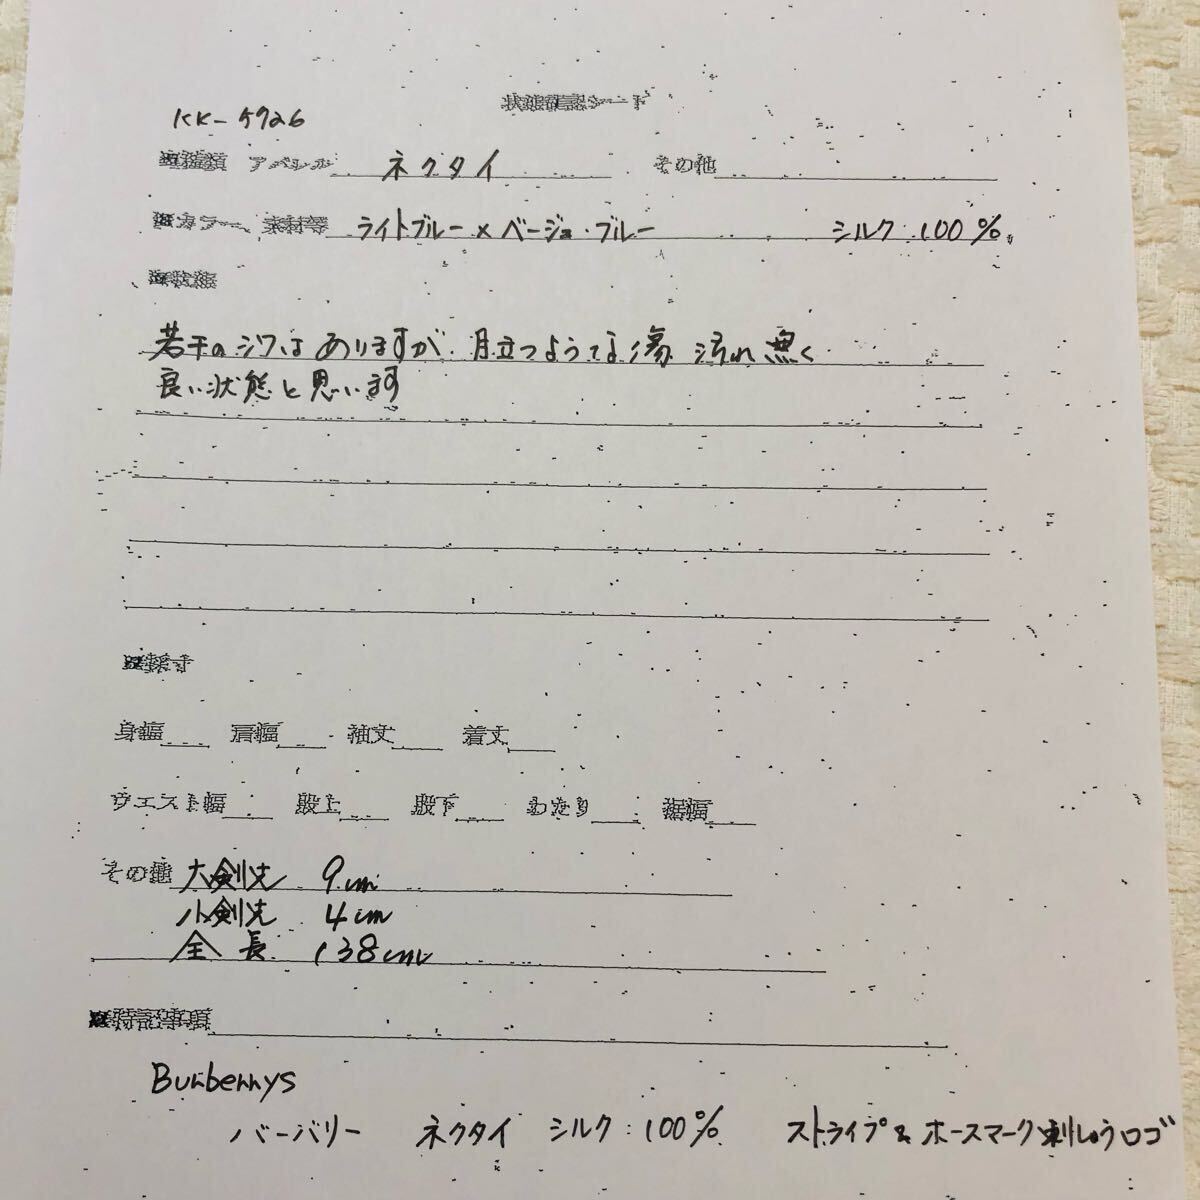 状態確認シート
KK-5726
※種類 アパレル ネクタイ その他
※カラー、素材等 ライトブルー×ベージュ・ブルー シルク:100%
※状態
若干のシワはありますが、目立つような傷 汚れ無く
良い状態と思います
※採寸
身幅 肩幅 袖丈 着丈
ウエスト幅 股上 股下 わたり 裾幅
その他 大剣先 9cm
小剣先 4cm
全長 138cm
※特記事項
Burberrys
バーバリー ネクタイ シルク:100% ストライプ&ホースマーク刺しゅうロゴ